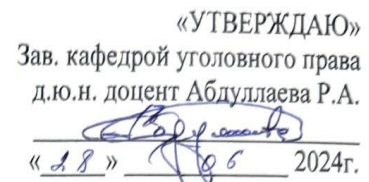 «УТВЕРЖДАЮ»
Зав. кафедрой уголовного права
д.ю.н. доцент Абдуллаева Р.А.
« 28 » 06 2024г.